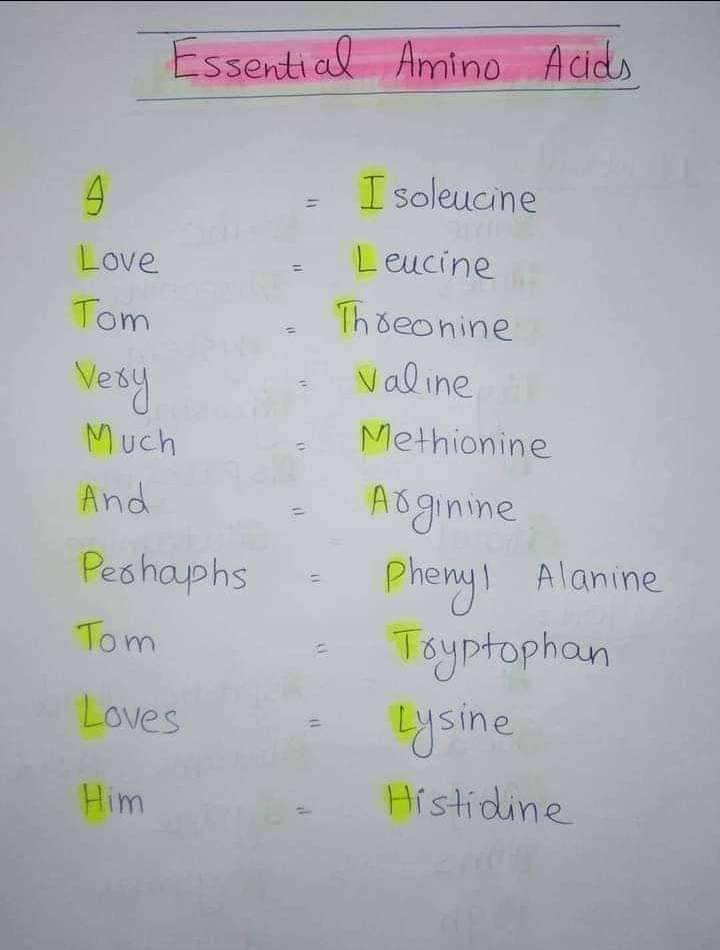 Essential Amino Acids
I = Isoleucine
Love = Leucine
Tom = Threonine
Very = Valine
Much = Methionine
And = Arginine
Perhaphs = Phenyl Alanine
Tom = Tryptophan
Loves = Lysine
Him = Histidine